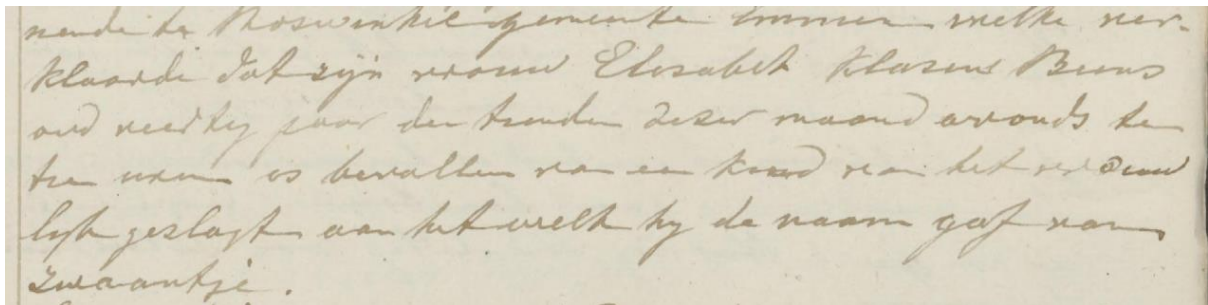 nende te Roswinkil gemeente Emmen welke ver-
klaarde dat zijn vrouw Elisabet Klasens Beens
oud veertig jaar den tienden dezer maand avonds te
tien uren is bevallen van een kind van het vrouw
lijk geslagt aan het welk hij de naam gaf van
zwaantje.